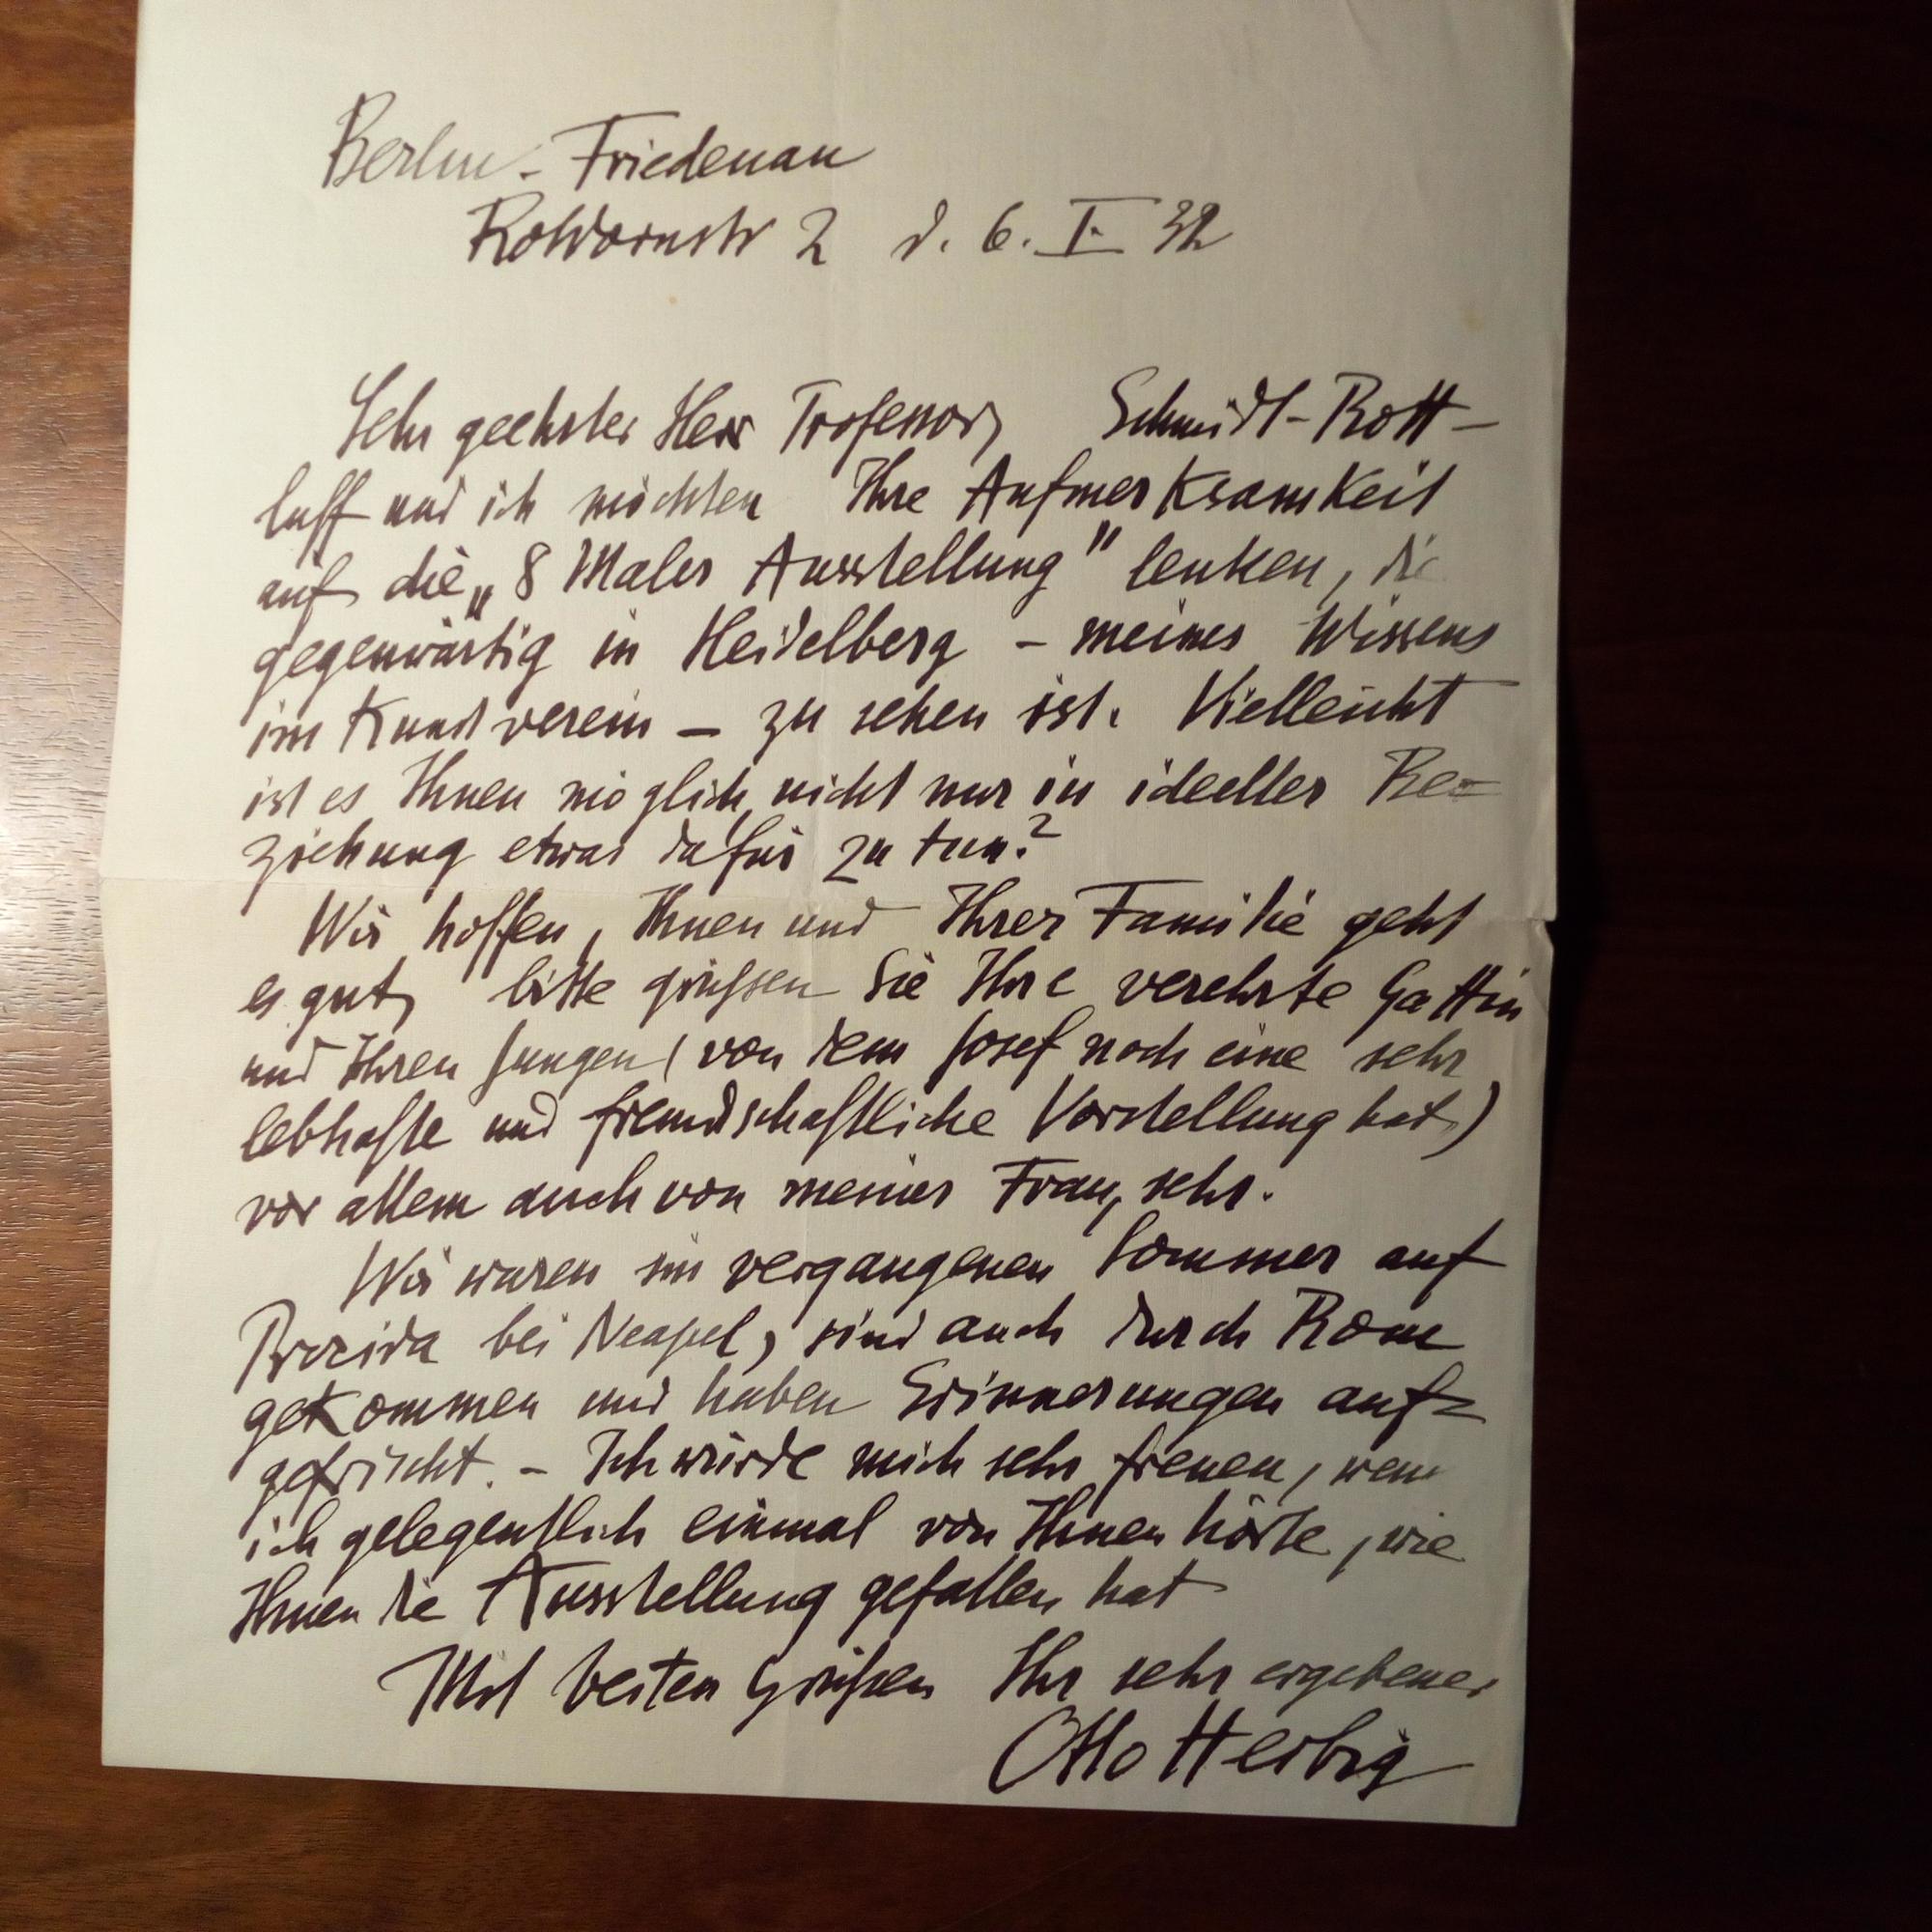 Berlin-Friedenau
Rotdornstr 2 d. 6. I. 32
Sehr geehrter Herr Professor, Schmidt-Rott-
luff und ich möchten Ihre Aufmerksamkeit
auf die „8 Maler Ausstellung" lenken, die
gegenwärtig in Heidelberg - meines Wissens
im Kunstverein - zu sehen ist. Vielleicht
ist es Ihnen möglich, nicht nur in ideeller Be=
ziehung etwas dafür zu tun?
Wir hoffen, Ihnen und Ihrer Familie geht
es gut, bitte grüssen Sie Ihre verehrte Gattin
und Ihren Jungen (von dem Josef noch eine sehr
lebhafte und freundschaftliche Vorstellung hat)
vor allem auch von meiner Frau, sehr.
Wir waren im vergangenen Sommer auf
Procida bei Neapel, sind auch durch Rom
gekommen und haben Erinnerungen auf=
gefrischt. - Ich würde mich sehr freuen, wenn
ich gelegentlich einmal von Ihnen hörte, wie
Ihnen die Ausstellung gefallen hat
Mit besten Grüßen Ihr sehr ergebener
Otto Herbig